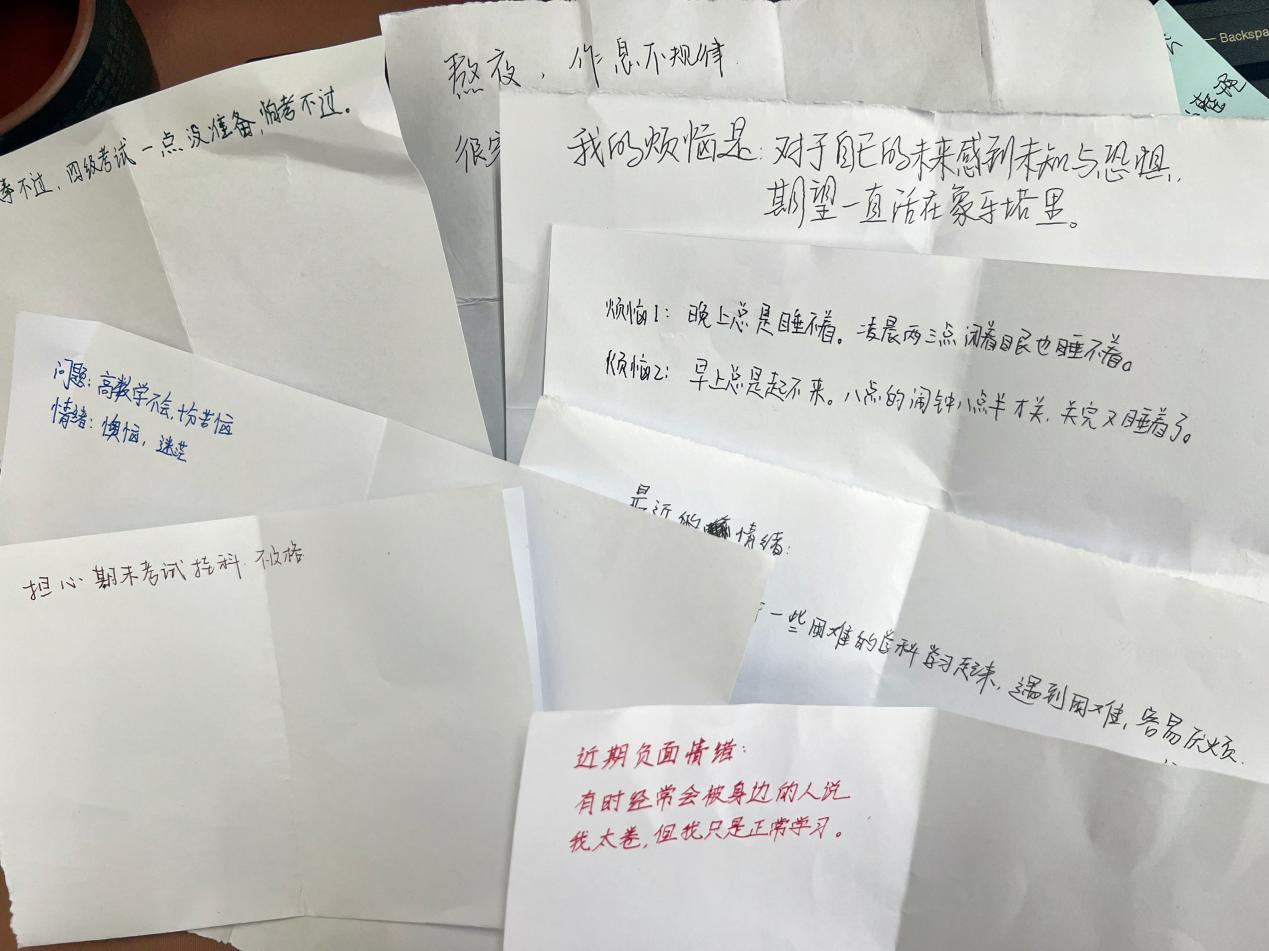 熬夜，作息不规律
很
Backspa
事不过，四级考试一点没准备，怕考不过。
我的烦恼是：对于自己的未来感到未知与恐惧，
期望一直活在象牙塔里。
烦恼1：晚上总是睡不着。凌晨两三点闭着眼也睡不着。
烦恼2：早上总是起不来。八点的闹钟八点半才关，关完又睡着了。
问题：高数学不会，十分苦恼
情绪：懊恼，迷茫
最近的情绪：
一些困难的学科学习起来，遇到困难，容易厌烦.
担心期末考试挂科 不及格
近期负面情绪：
有时经常会被身边的人说
我太卷，但我只是正常学习。